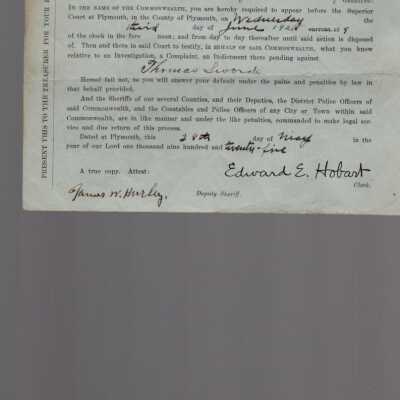 Greeting:
IN THE NAME OF THE COMMONWEALTH, you are hereby required to appear before the Superior
Court at Plymouth, in the County of Plymouth, on Wednesday the
third day of June 192 at 9
of the clock in the fore noon; and from day to day thereafter until said action is disposed
of. Then and there in said Court to testify, in BEHALF OF SAID COMMONWEALTH, what you know
relative to an Investigation, a Complaint, an Indictment there pending against
Thomas Sword
Hereof fail not, as you will answer your default under the pains and penalties by law in
that behalf provided.
And the Sheriffs of our several Counties, and their Deputies, the District Police Officers of
said Commonwealth, and the Constables and Police Officers of any City or Town within said
Commonwealth, are in like manner and under the like penalties, commanded to make legal ser-
vice and due return of this process.
Dated at Plymouth, this 28th day of May in the
year of our Lord one thousand nine hundred and twenty-five
Edward E. Hobart
A true copy. Attest: Clerk.
James W. Hurley, Deputy Sheriff.
PRESENT THIS TO THE TREASURER FOR YOUR